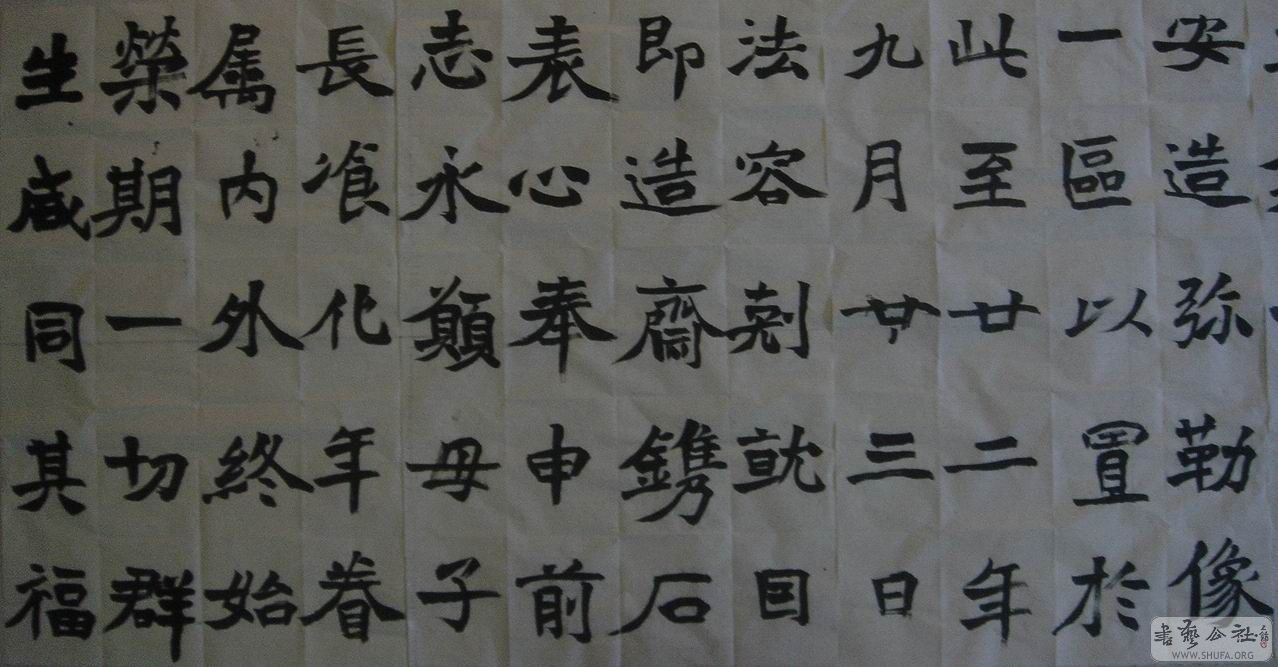 安造弥勒像
一區以置於
此至廿二年
九月廿三日
法容剋就因
即造齋鎸石
表心奉申前
志永願母子
長飡化年眷
属内外終始
榮期一切群
生咸同其福
書藝公社
WWW.SHUFA.ORG